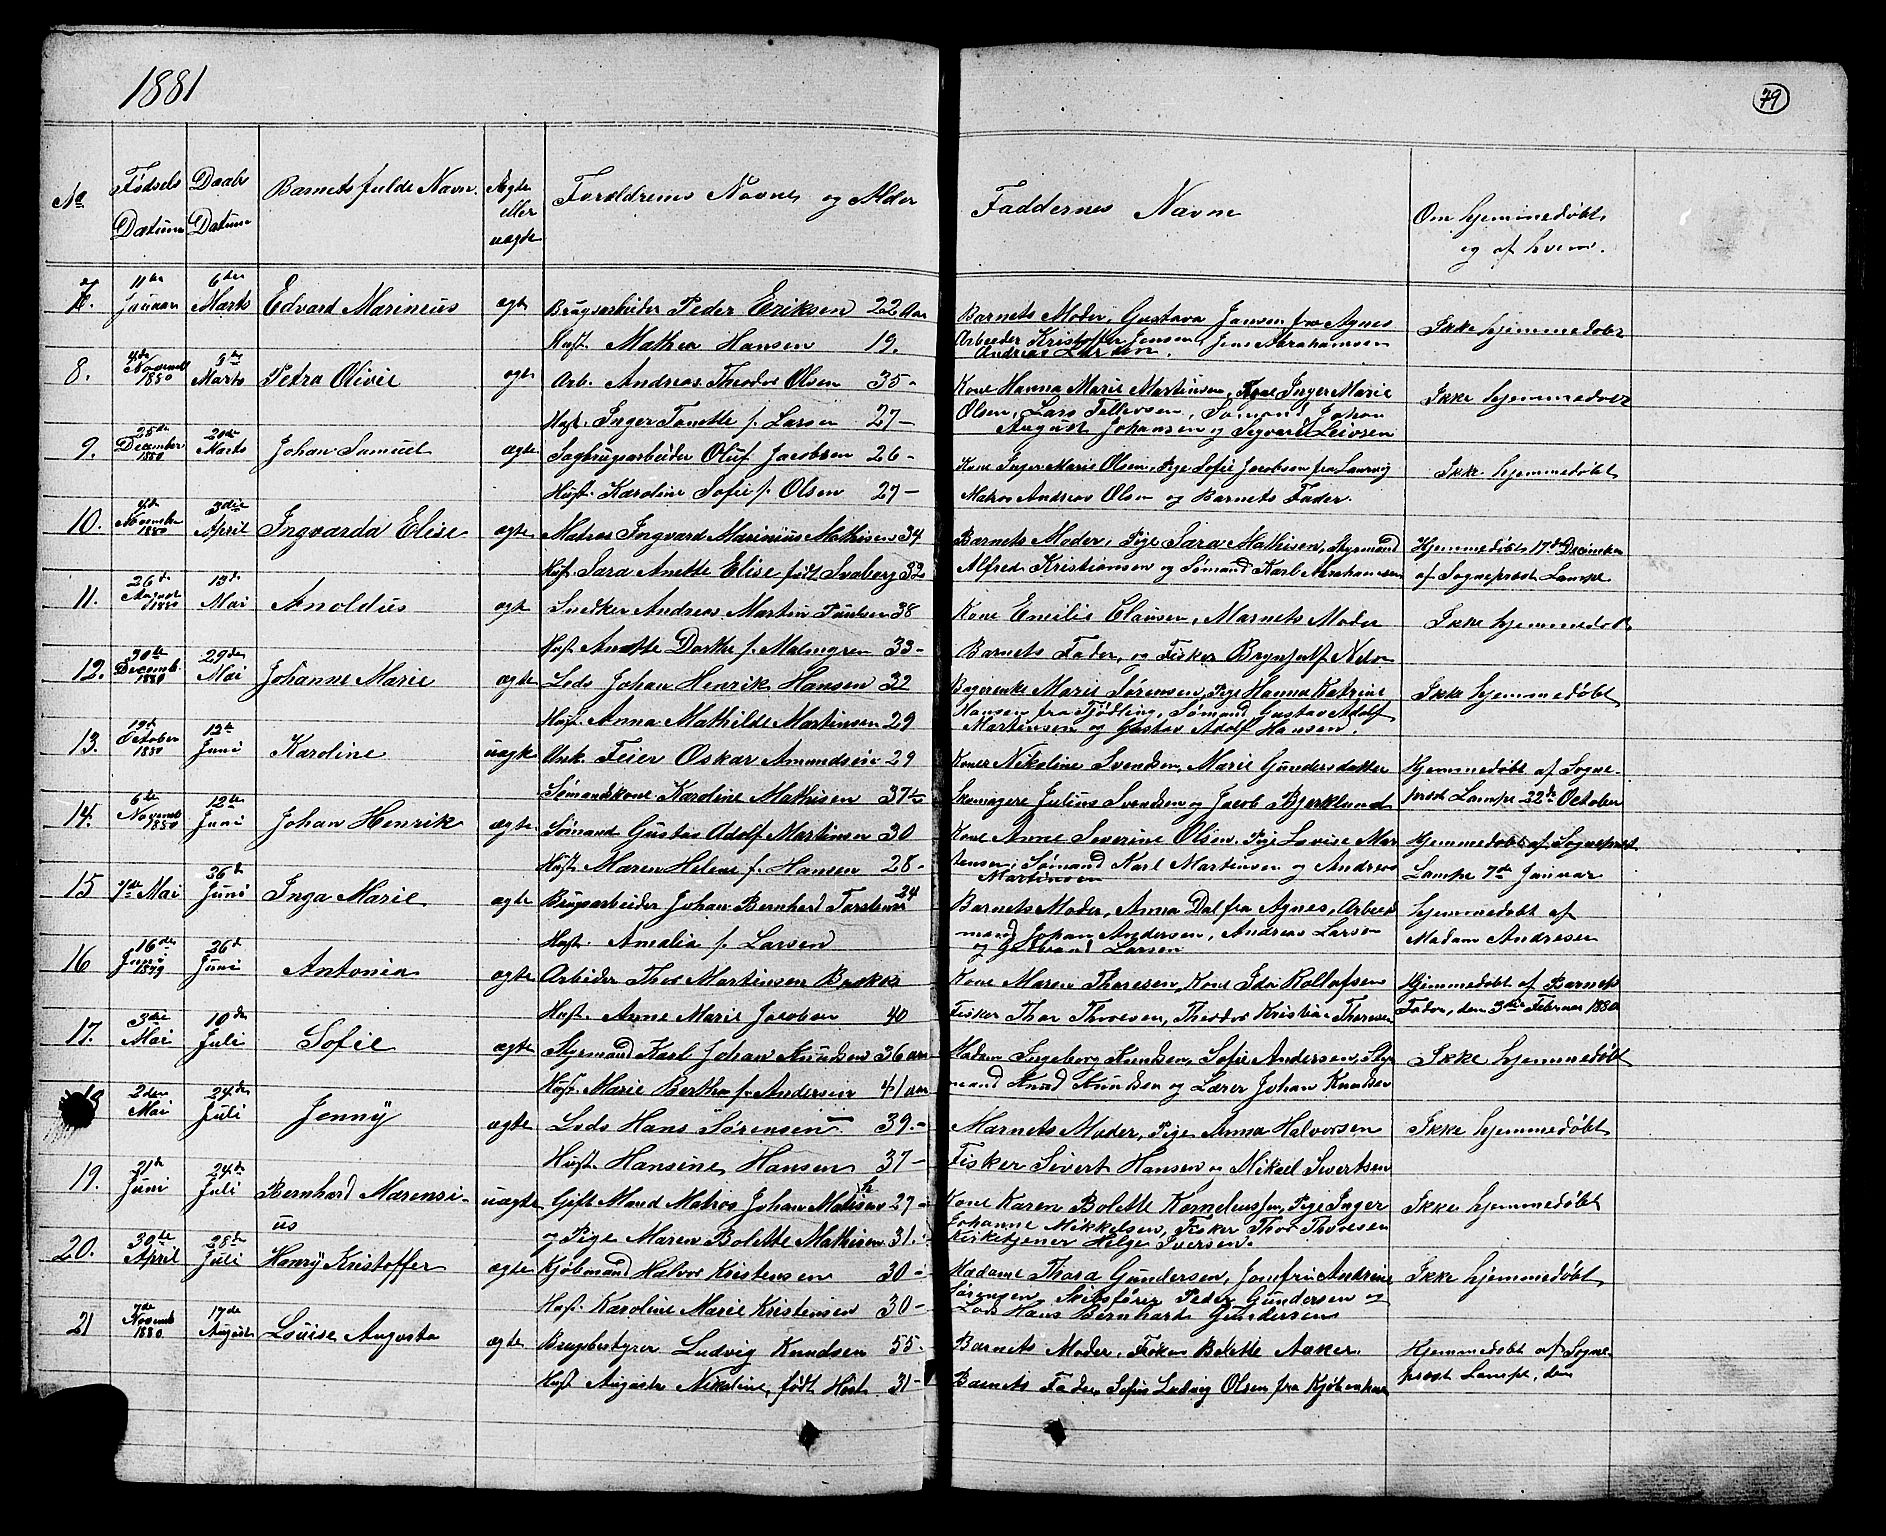 1881
79
No Fødsels Datum Daabs Datum Barnets fulde Navn Ægte eller uægte Forældrenes Navne og Alder Faddernes Navne Om hjemmedøbt og af hvem.
7. 11te Januar 6te Marts Edvard Marineus ægte Brugsarbeider Peder Eriksen 22 Aar Barnets Moder, Gustava Jansen fra Agnes Ikke hjemmedøbt
Hust. Mathea Hansen 19. Arbeider Kristoffer Jensen, Jens Abrahamsen
Andreas Larsen.
8. 4de Novemb 1880 Marts Petra Olivie ægte Arb. Andreas Theodor Olsen 35- Kone Hanna Marie Martinsen, Inger Marie Ikke hjemmedøbt
Hust. Inger Tonette f. Larsen 27- Olsen, Lars Tellevsen, Sømand Johan
August Johansen og Sigvard Leivsen
9. 25de December 1880 20de Marts Johan Samuel ægte Sagbrugsarbeider Oluf Jacobsen 26- Kone Inger Marie Olsen, Pige Sofie Jacobsen fra Laurvig Ikke hjemmedøbt
Hust. Karoline Sofie f. Olsen 27- Matros Andreas Olsen og Barnets Fader.
10. November 1880 3die April Ingvarda Elise ægte Matros Ingvard Marinius Mathisen 34 Barnets Moder, Pige Sara Mathisen, Styrmand Hjemmedøbt 17de December
Hust. Sara Anette Elise født Svaberg 32 Alfred Kristiansen og Sømand Karl Abrahamsen af Sogneprest Lampe
11. 26de August 1880 Mai Anoldus ægte Snedker Andreas Martin Paulsen 38 Kone Emilie Clausen, Marnets Moder Ikke hjemmedøbt
Hust. Anette Dorthe f. Malmgren 33- Barnets Fader, og Fisker Brynjulf Nelson
12. 30te Decemb. 1880 29de Mai Johanne Marie ægte Lods Johan Henrik Hansen 32 Marie Sørensen, Pige Hanna Katrine Ikke hjemmedøbt
Hust. Anna Mathilde Martinsen 29 Hansen fra Tjødling, Sømand Gustav Adolf
Martinsen og Gustav Adolf Hansen.
13. October 1880 12te Juni Karoline uægte Unk. Feier Oskar Amundsen 29 Koner Nikoline Svendsen, Marie Gundersdatter Hjemmedøbt af Sogne-
Sømandskone Karoline Mathisen 37 Skomagere Julius Svendsen og Jacob Bjerklund prest Lampe 22de October
14. 6te Novemb 1880 12te Juni Johan Henrik ægte Sømand Gustav Adolf Martinsen 30 Kone Anne Severine Olsen, Pige Lovise Mar Hjemmedøbt af Sogneprest
Hust. Maren Helene f. Hansen 28- tensen, Sømand Karl Martinsen og Andreas Lampe 7de Januar
Martinsen
15 7de Mai 26de Juni Inga Marie ægte Brugsarbeider Johan Bernhard Torstensen 24 Barnets Moder, Anna Dal fra Agnes, Arbeid hjemmedøbt af
Hust. Amalia f. Larsen mand Johan Andersen, Andreas Larsen Madam Andresen
og Gulbrand Larsen
16 16de Juni 1879 26de Juni Antonia ægte Arbeider Thor Martinsen Bakke Kone Maren Thoresen, Kone Ida Rollofsen Hjemmedøbt af Barnets
Hust. Anne Marie Jacobsen 40 Fisker Thor Thoresen, Theodor Kristian Thoresen Fader, den 3die Februar 1880
17. 3die Mai 10de Juli Sofie ægte Styrmand Karl Johan Knudsen 36 aar Madam Ingeborg Knudsen, Sofie Andersen, Styr Ikke hjemmedøbt
Hust. Marie Bertha f. Andersen 41 aar mand Knud Knudsen og Lærer Johan Knudsen
18 2den Mai 24de Juli Jenny ægte Lods Hans Sørensen 39.- Marnets Moder, Pige Anna Halvorsen Ikke hjemmedøbt
Hust. Hansine Hansen 37- Fisker Sivert Hansen og Mikael Sivertsen
19. 21de Juni 24de Juli Bernhard Marensi- uægte Gift Mand Matros Johan Mathisen 27- Kone Karen Bolette Korneliussen, Pige Inger Ikke hjemmedøbt
us og Pige Maren Bolette Mathisen 31. Johanne Mikkelsen, Fisker Thor Thoresen
Kirketjener Helge Iversen.
20. 30te April 28de Juli Henry Kristoffer ægte Kjøbmand Halvor Kristensen 30- Madame Thora Gundersen, Jomfru Andrine Ikke hjemmedøbt
Hust. Karoline Marie Kristensen 30- Sørensen, Skibsfører Peder Gundersen og
Lods Hans Bernhard Gundersen
21 7de Novemb 1880 17de August Louise Augusta ægte Brugsbestyrer Ludvig Knudsen 55- Barnets Moder, Frøken Bolette Aaker Hjemmedøbt af Sogne-
Hust. Augusta Nikoline, født Høst 31- Barnets Fader, Sofus Ludvig Olsen fra Kjøbenhavn prest Lampe, den